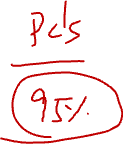 Pc's
95%